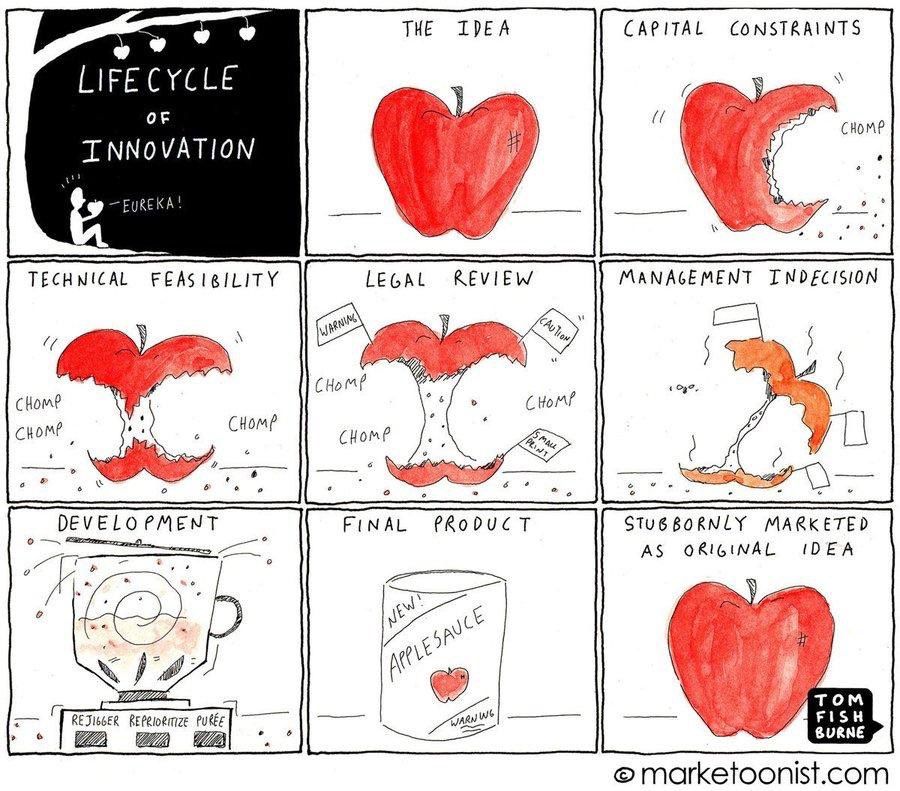 LIFECYCLE
OF
INNOVATION
EUREKA!
THE IDEA
CAPITAL CONSTRAINTS
CHOMP
TECHNICAL FEASIBILITY
CHOMP
CHOMP
CHOMP
LEGAL REVIEW
WARNING
CAUTION
CHOMP
CHOMP
CHOMP
SMALL
PRINT
MANAGEMENT INDECISION
DEVELOPMENT
REJIGGER REPRIORITIZE PURÉE
FINAL PRODUCT
NEW!
APPLESAUCE
WARNING
STUBBORNLY MARKETED
AS ORIGINAL IDEA
TOM
FISH
BURNE
© marketoonist.com